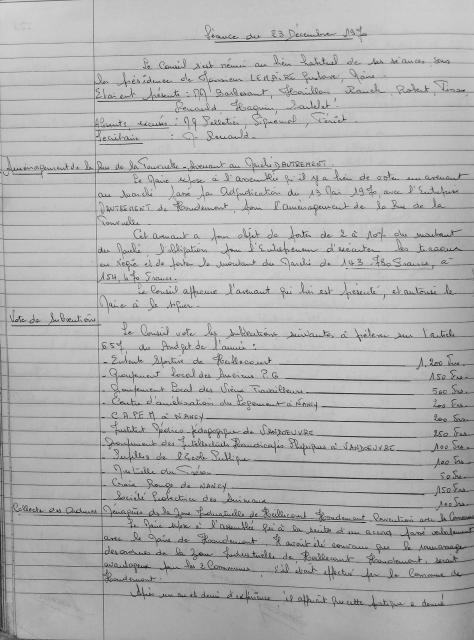 Séance du 23 Décembre 197
Le Conseil s'est réuni au lieu habituel de ses séances sous
la présidence de Monsieur LEMAIRE Gustave, Maire.
Etaient présents : MM Barbesant, Rauch, Robert,
Renauld, Haquin,
Absents, excusés : MM Pelletier,
Secrétaire : Renauld.
Aménagement de la Rue de la Tournelle - Avenant au Marché DAUTREMENT.
Le Maire expose à l'assemblée qu'il y a lieu de voter un avenant
au marché passé par Adjudication du 13 Mai 1970, avec l'Entreprise
DAUTREMENT de Houdemont, pour l'aménagement de la Rue de la
Tournelle
Cet avenant a pour objet de porter de 2 à 10% du montant
du Marché l'obligation pour l'Entrepreneur d'exécuter les travaux
en régie et de porter le montant du Marché de 143.780 Francs, à
154.470 Francs.
Le Conseil approuve l'avenant qui lui est présenté, et autorise le
Maire à le signer.
Vote de Subventions
Le Conseil vote les subventions suivantes à prélever sur l'article
657 du Budget de l'année :
- Entente Sportive de Heillecourt 1.200 Frs.
- Groupement Local des Anciens P.G. 150 Frs.
- Groupement Local des Vieux Travailleurs 500 Frs.
- Centre d'amélioration du Logement à NANCY 200 Frs.
- C.A.P.E.M à NANCY 200 Frs.
- Institut Médico-pédagogique de VANDOEUVRE 250 Frs.
- Groupement des Intellectuels Handicapés Physiques à VANDOEUVRE 100 Frs.
- Pupilles de l'Ecole Publique 100 Frs.
- 50 Frs.
- Croix Rouge de NANCY 150 Frs.
- Société Protectrice des Animaux 100 Frs.
Collecte des Ordures Ménagères de la Zone Industrielle de Heillecourt Houdemont Convention avec la Commune
Le Maire expose à l'assemblée qu'à la suite d'un accord passé verbalement
avec le Maire de Houdemont il avait été convenu que le ramassage
des ordures de la Zone Industrielle de Heillecourt Houdemont, serait
avantageux pour les 2 Communes, s'il était effectué par la Commune de
Houdemont.
Après un an et demi d'expérience, il apparait que cette pratique a donné